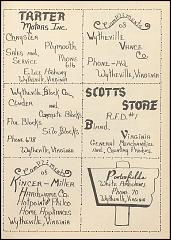 TARTER
Motors, Inc.
Chrysler
Plymouth
Sales and
Service
Phone
616
E. Lee Highway
Wytheville, Virginia
Compliments
of
Wytheville
Vance
Co.
Phone-142
Wytheville, Virginia
Wytheville Block Co.
Cinder
and
Concrete Blocks
Flue Blocks
Silo Blocks
Phone 678
Wytheville, Virginia
SCOTTS
STORE
R.F.D. #1
Bland,
Virginia
General Merchandise
and, Country Produce
Compliments
of
Kincer-Miller
Hardware Co.
Hotpoint Philco
Home Appliances
Wytheville, Virginia
Phone 70
Wytheville, Virginia